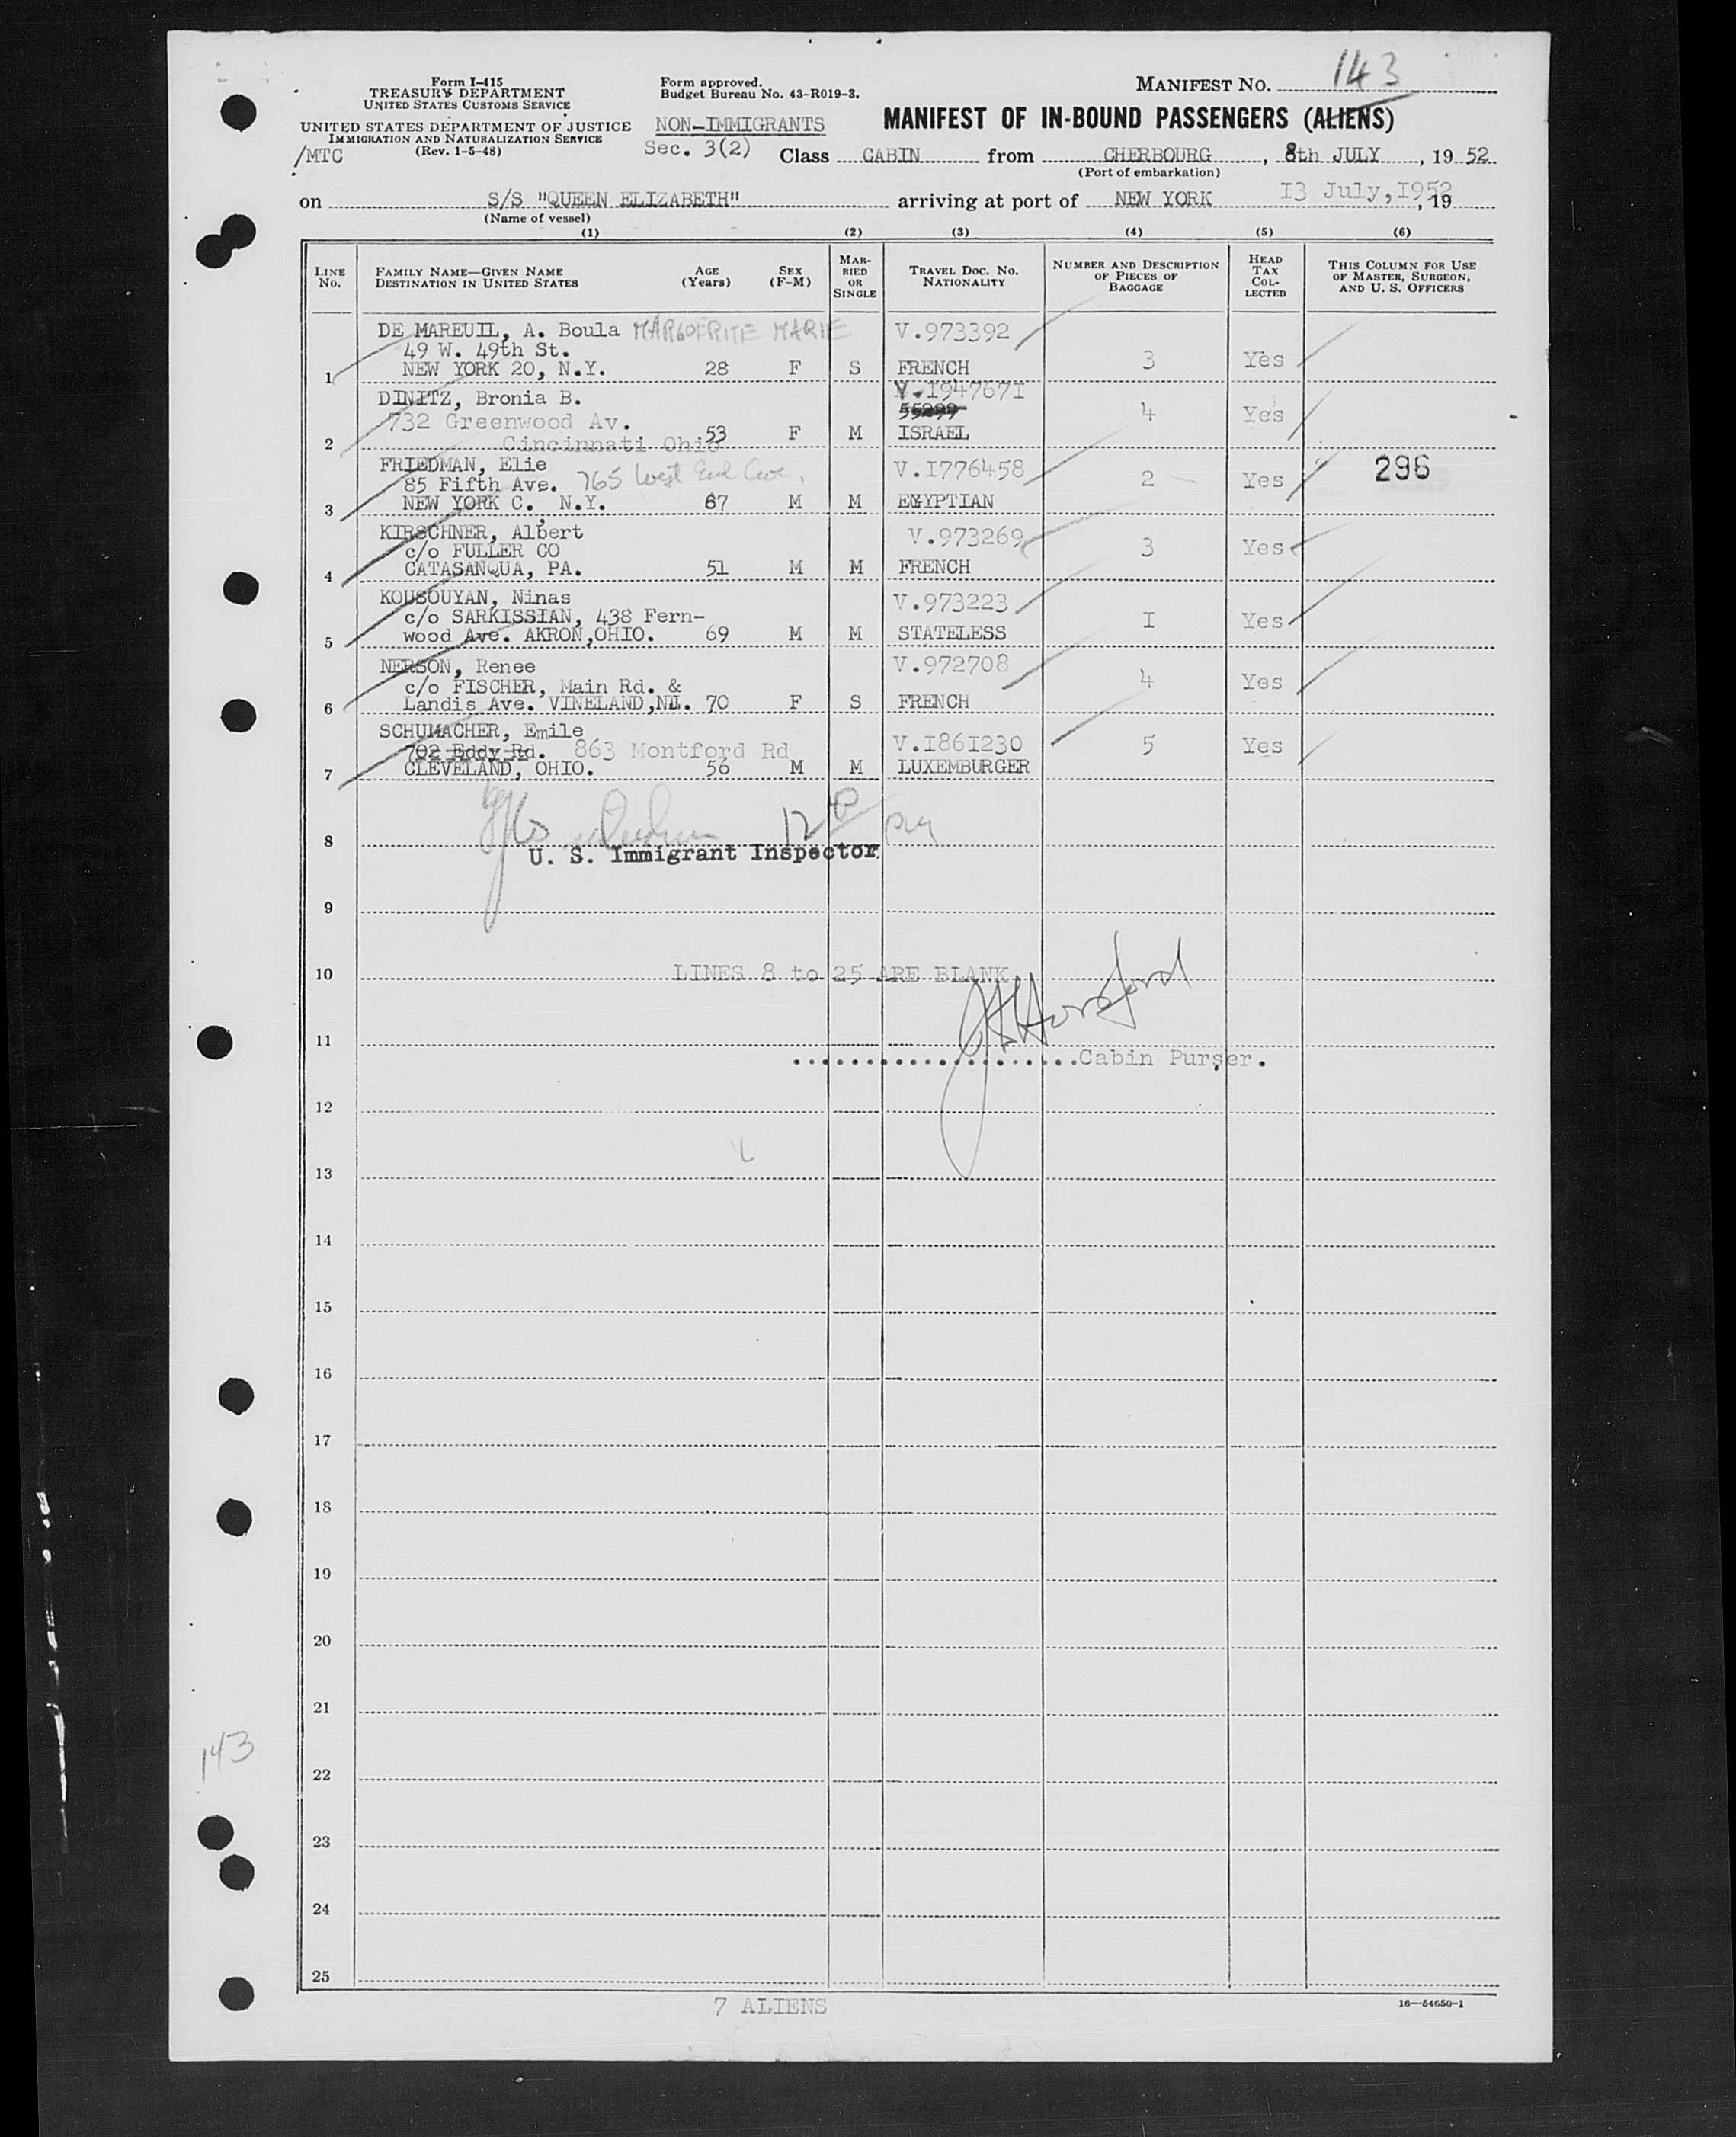 Form I-415
TREASURY DEPARTMENT
UNITED STATES CUSTOMS SERVICE
UNITED STATES DEPARTMENT OF JUSTICE
IMMIGRATION AND NATURALIZATION SERVICE
(Rev. 1-5-48)
/MTC
Form approved.
Budget Bureau No. 43-R019-3.
NON-IMMIGRANTS
Sec. 3(2)
MANIFEST NO. 143
MANIFEST OF IN-BOUND PASSENGERS (ALIENS)
Class CABIN from CHERBOURG, 8th JULY, 19 52
(Port of embarkation)
on S/S "QUEEN ELIZABETH" arriving at port of NEW YORK 13 July,1952, 19
(Name of vessel)
(1) (2) (3) (4) (5) (6)
LINE NO. FAMILY NAME—GIVEN NAME DESTINATION IN UNITED STATES AGE (Years) SEX (F-M) MARRIED OR SINGLE TRAVEL DOC. NO. NATIONALITY NUMBER AND DESCRIPTION OF PIECES OF BAGGAGE HEAD TAX COLLECTED THIS COLUMN FOR USE OF MASTER, SURGEON, AND U. S. OFFICERS
DE MAREUIL, A. Boula MARGUERITE MARIE V.973392
49 W. 49th St.
1 NEW YORK 20, N.Y. 28 F S FRENCH 3 Yes
DINITZ, Bronia B. V.I947671
732 Greenwood Av. 55299
2 Cincinnati Ohio 53 F M ISRAEL 4 Yes
FRIEDMAN, Elie V.I776458
85 Fifth Ave. 765 West End Ave,
3 NEW YORK C. N.Y. 67 M M EGYPTIAN 2 Yes 296
KIRSCHNER, Albert V.973269
c/o FULLER CO
4 CATASANQUA, PA. 51 M M FRENCH 3 Yes
KOUSOUYAN, Ninas V.973223
c/o SARKISSIAN, 438 Fern-
5 wood Ave. AKRON,OHIO. 69 M M STATELESS I Yes
NERSON, Renee V.972708
c/o FISCHER, Main Rd. &
6 Landis Ave. VINELAND,NJ. 70 F S FRENCH 4 Yes
SCHUMACHER, Emile V.I86I230
702 Eddy Rd. 863 Montford Rd
7 CLEVELAND, OHIO. 56 M M LUXEMBURGER 5 Yes
8
U. S. Immigrant Inspector
9
10 LINES 8 to 25 ARE BLANK
11
Cabin Purser.
12
13
14
15
16
17
18
19
20
21
143
22
23
24
25
7 ALIENS
16—54650-1